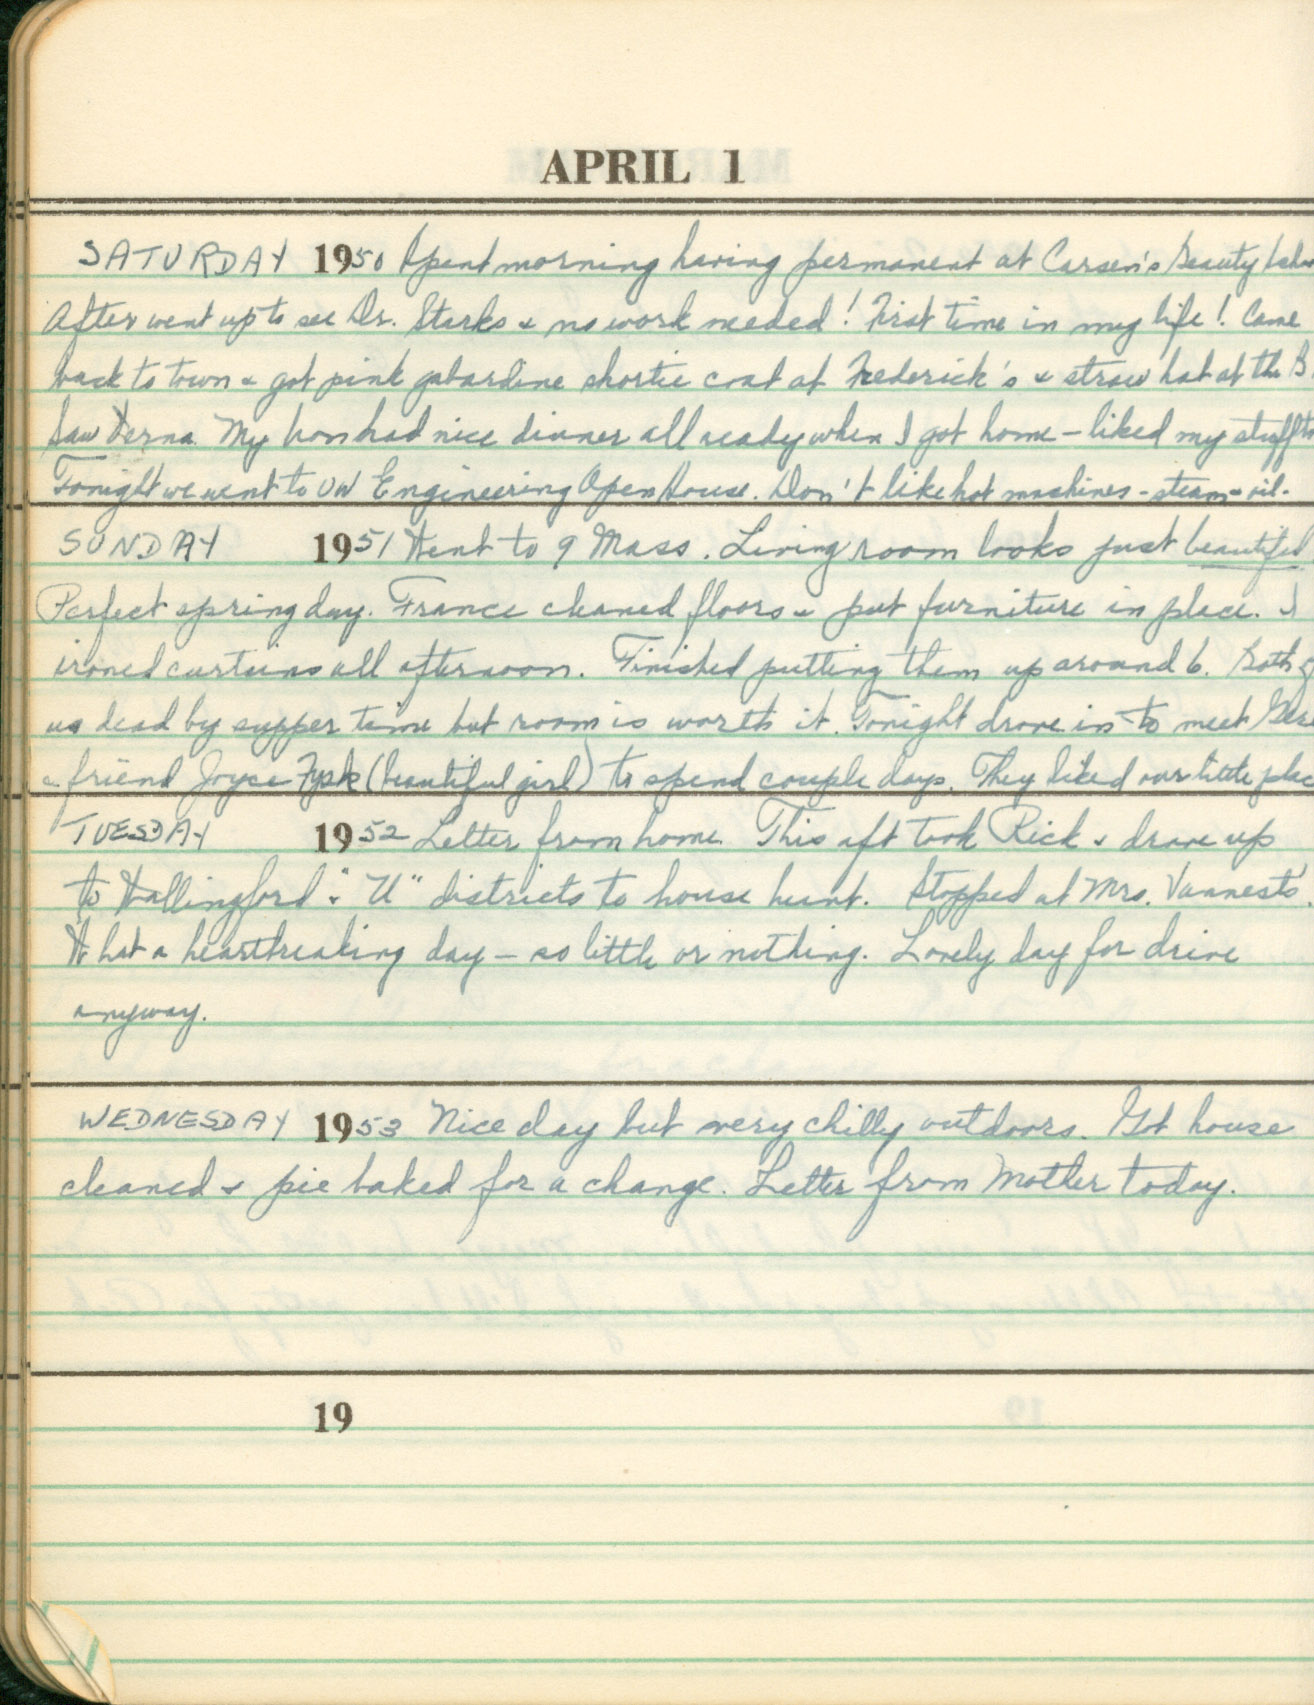 APRIL 1
SATURDAY 1950 Spent morning having permanent at Carsen's Beauty
After went up to see Dr. Starks & no work needed! First time in my life! Came
back to town & got pink gabardine shortie coat at Frederick's & straw hat at the B
Saw Verna. My hon had nice dinner all ready when I got home - liked my stuff
Tonight we went to UW Engineering Open House. Don't like hot machines - steam - oil.
SUNDAY 1951 Went to 9 Mass. Living room looks just beautiful
Perfect spring day. France cleaned floors & put furniture in place. I
ironed curtains all afternoon. Finished putting them up around 6. Both of
us dead by supper time but room is worth it. Tonight drove in to meet
& friend Joyce Fysk (beautiful girl) to spend couple days. They liked our little plac
TUESDAY 1952 Letter from home. This aft took Rick & drove up
to Wallingford & "U" districts to house hunt. Stopped at Mrs. Vannests'.
What a heartbreaking day - so little or nothing. Lovely day for drive
anyway.
WEDNESDAY 1953 Nice day but very chilly outdoors. Got house
cleaned & pie baked for a change. Letter from Mother today.
19